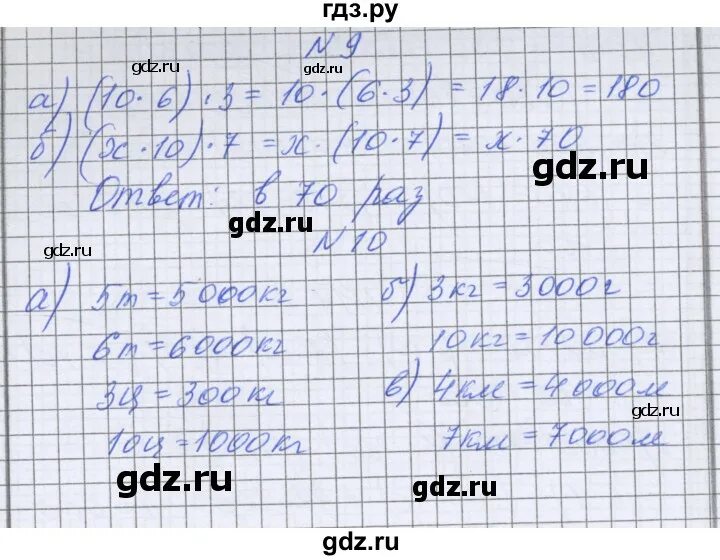 гдз.ру
N 9
gdz.ru gdz.ru
а) (10·6)·3 = 10·(6·3) = 18·10 = 180
б) (х·10)·7 = х·(10·7) = х·70
gdz.ru
Ответ: в 70 раз
gdz.ru
N 10
gdz.ru
а) 5т = 5000кг
6т = 6000кг
3ц = 300кг
10ц = 1000кг
б) 3кг = 3000г
10кг = 10000г
в) 4км = 4000м
gdz.ru
7км = 7000м
gdz.ru
gdz.ru
gdz.ru